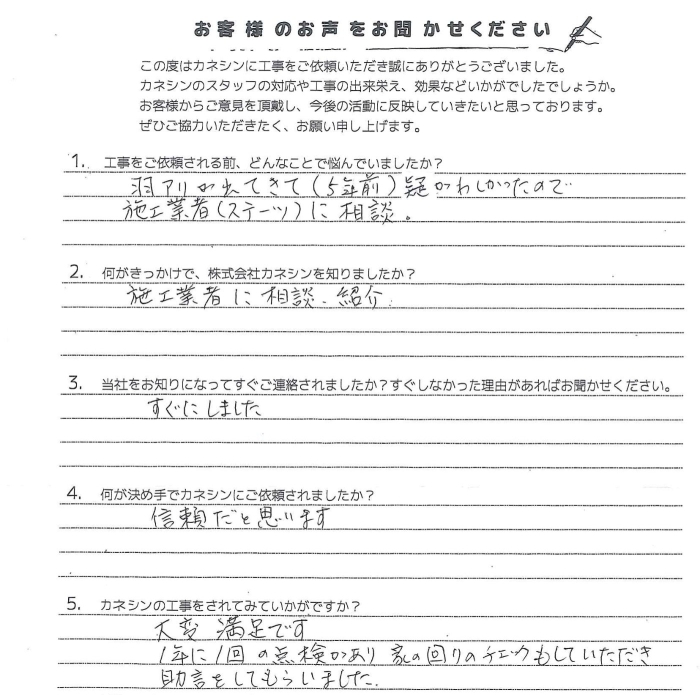 お客様のお声をお聞かせください
この度はカネシンに工事をご依頼いただき誠にありがとうございました。
カネシンのスタッフの対応や工事の出来栄え、効果などいかがでしたでしょうか。
お客様からご意見を頂戴し、今後の活動に反映していきたいと思っております。
ぜひご協力いただきたく、お願い申し上げます。
1. 工事をご依頼される前、どんなことで悩んでいましたか?
羽アリが出てきて(5年前)疑がわしかったので
施工業者(ステーツ)に相談。
2. 何がきっかけで、株式会社カネシンを知りましたか?
施工業者に相談、紹介
3. 当社をお知りになってすぐご連絡されましたか?すぐしなかった理由があればお聞かせください。
すぐにしました
4. 何が決め手でカネシンにご依頼されましたか?
信頼だと思います
5. カネシンの工事をされてみていかがですか?
大変 満足です
1年に1回の点検があり 家の回りのチェックもしていただき
助言をしてもらいました.